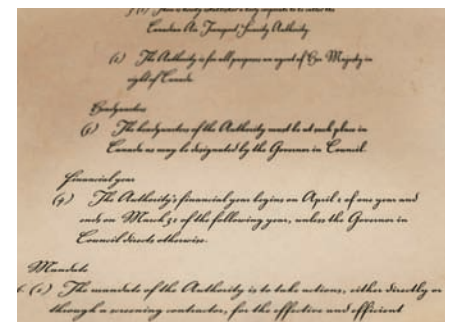 5 (1) There is hereby established a body corporate to be called the
Canadian Air Transport Security Authority.
(2) The Authority is for all purposes an agent of Her Majesty in
right of Canada.
Headquarters
(3) The headquarters of the Authority must be at such place in
Canada as may be designated by the Governor in Council.
Financial year
(4) The Authority's financial year begins on April 1 of one year and
ends on March 31 of the following year, unless the Governor in
Council directs otherwise.
Mandate
6. (1) The mandate of the Authority is to take actions, either directly or
through a screening contractor, for the effective and efficient